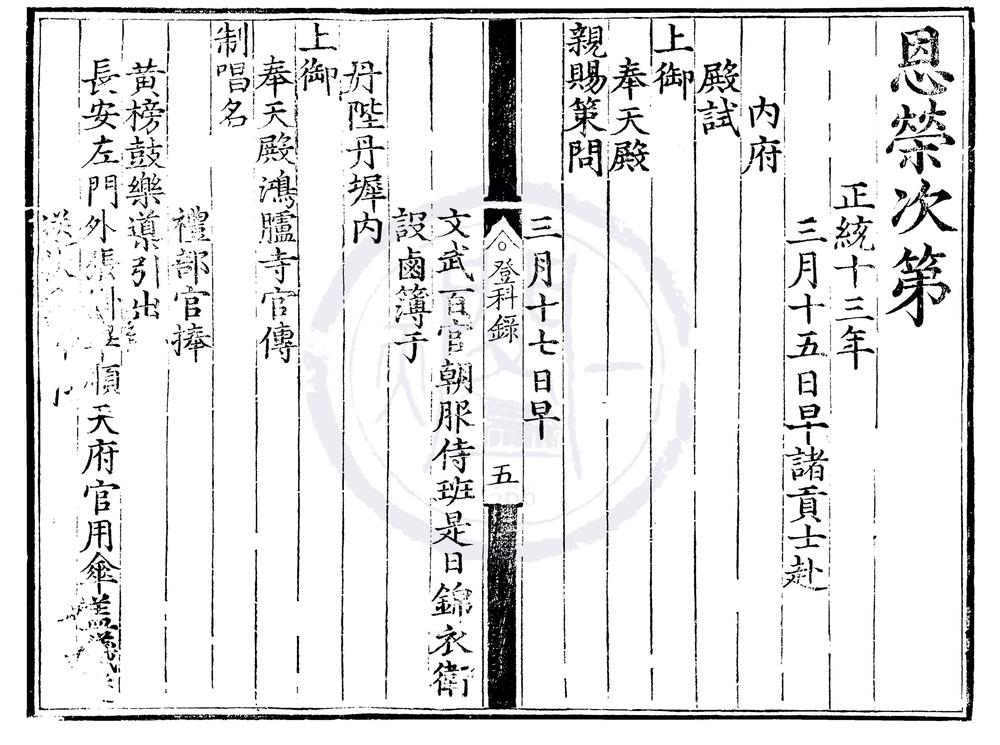 恩榮次第
正統十三年
三月十五日早諸貢士赴
內府
殿試
上御
奉天殿
親賜策問
三月十七日早
登科錄
五
文武百官朝服侍班是日錦衣衛
設鹵簿于
丹陛丹墀內
上御
奉天殿鴻臚寺官傳
制唱名
禮部官捧
黃榜鼓樂導引出
長安左門外張掛畢順天府官用傘蓋儀